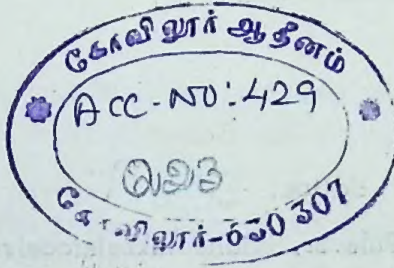 கோவிலூர் ஆதீனம்
Acc-No: 429
கோவிலூர்-630 307